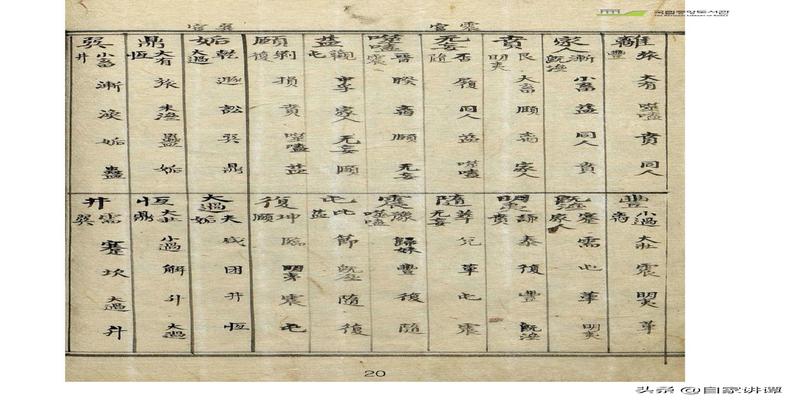 國立中央圖書館
震宮
巽宮
離 豐 旅 大有 噬嗑 賁 同人
家人 既濟 漸 小畜 益 同人 賁
賁 明夷 艮 大畜 頤 离 家人
无妄 隨 否 履 同人 益 噬嗑
噬嗑 震 晉 睽 离 頤 无妄
益 屯 觀 中孚 家人 无妄 頤
頤 復 剝 損 賁 噬嗑 益
姤 大過 乾 遯 訟 巽 鼎
鼎 恒 大有 旅 未濟 蠱 姤
巽 井 小畜 漸 渙 姤 蠱
豐 离 小過 大壯 震 明夷 革
既濟 家人 蹇 需 屯 革 明夷
明夷 賁 謙 泰 復 豐 既濟
隨 无妄 萃 兌 革 屯 震
震 噬嗑 豫 歸妹 豐 復 隨
屯 益 比 節 既濟 隨 復
復 頤 坤 臨 明夷 震 屯
大過 姤 夬 咸 困 井 恒
恒 鼎 大壯 小過 解 升 大過
井 巽 需 蹇 坎 大過 升
20
头条 @自家讲谭